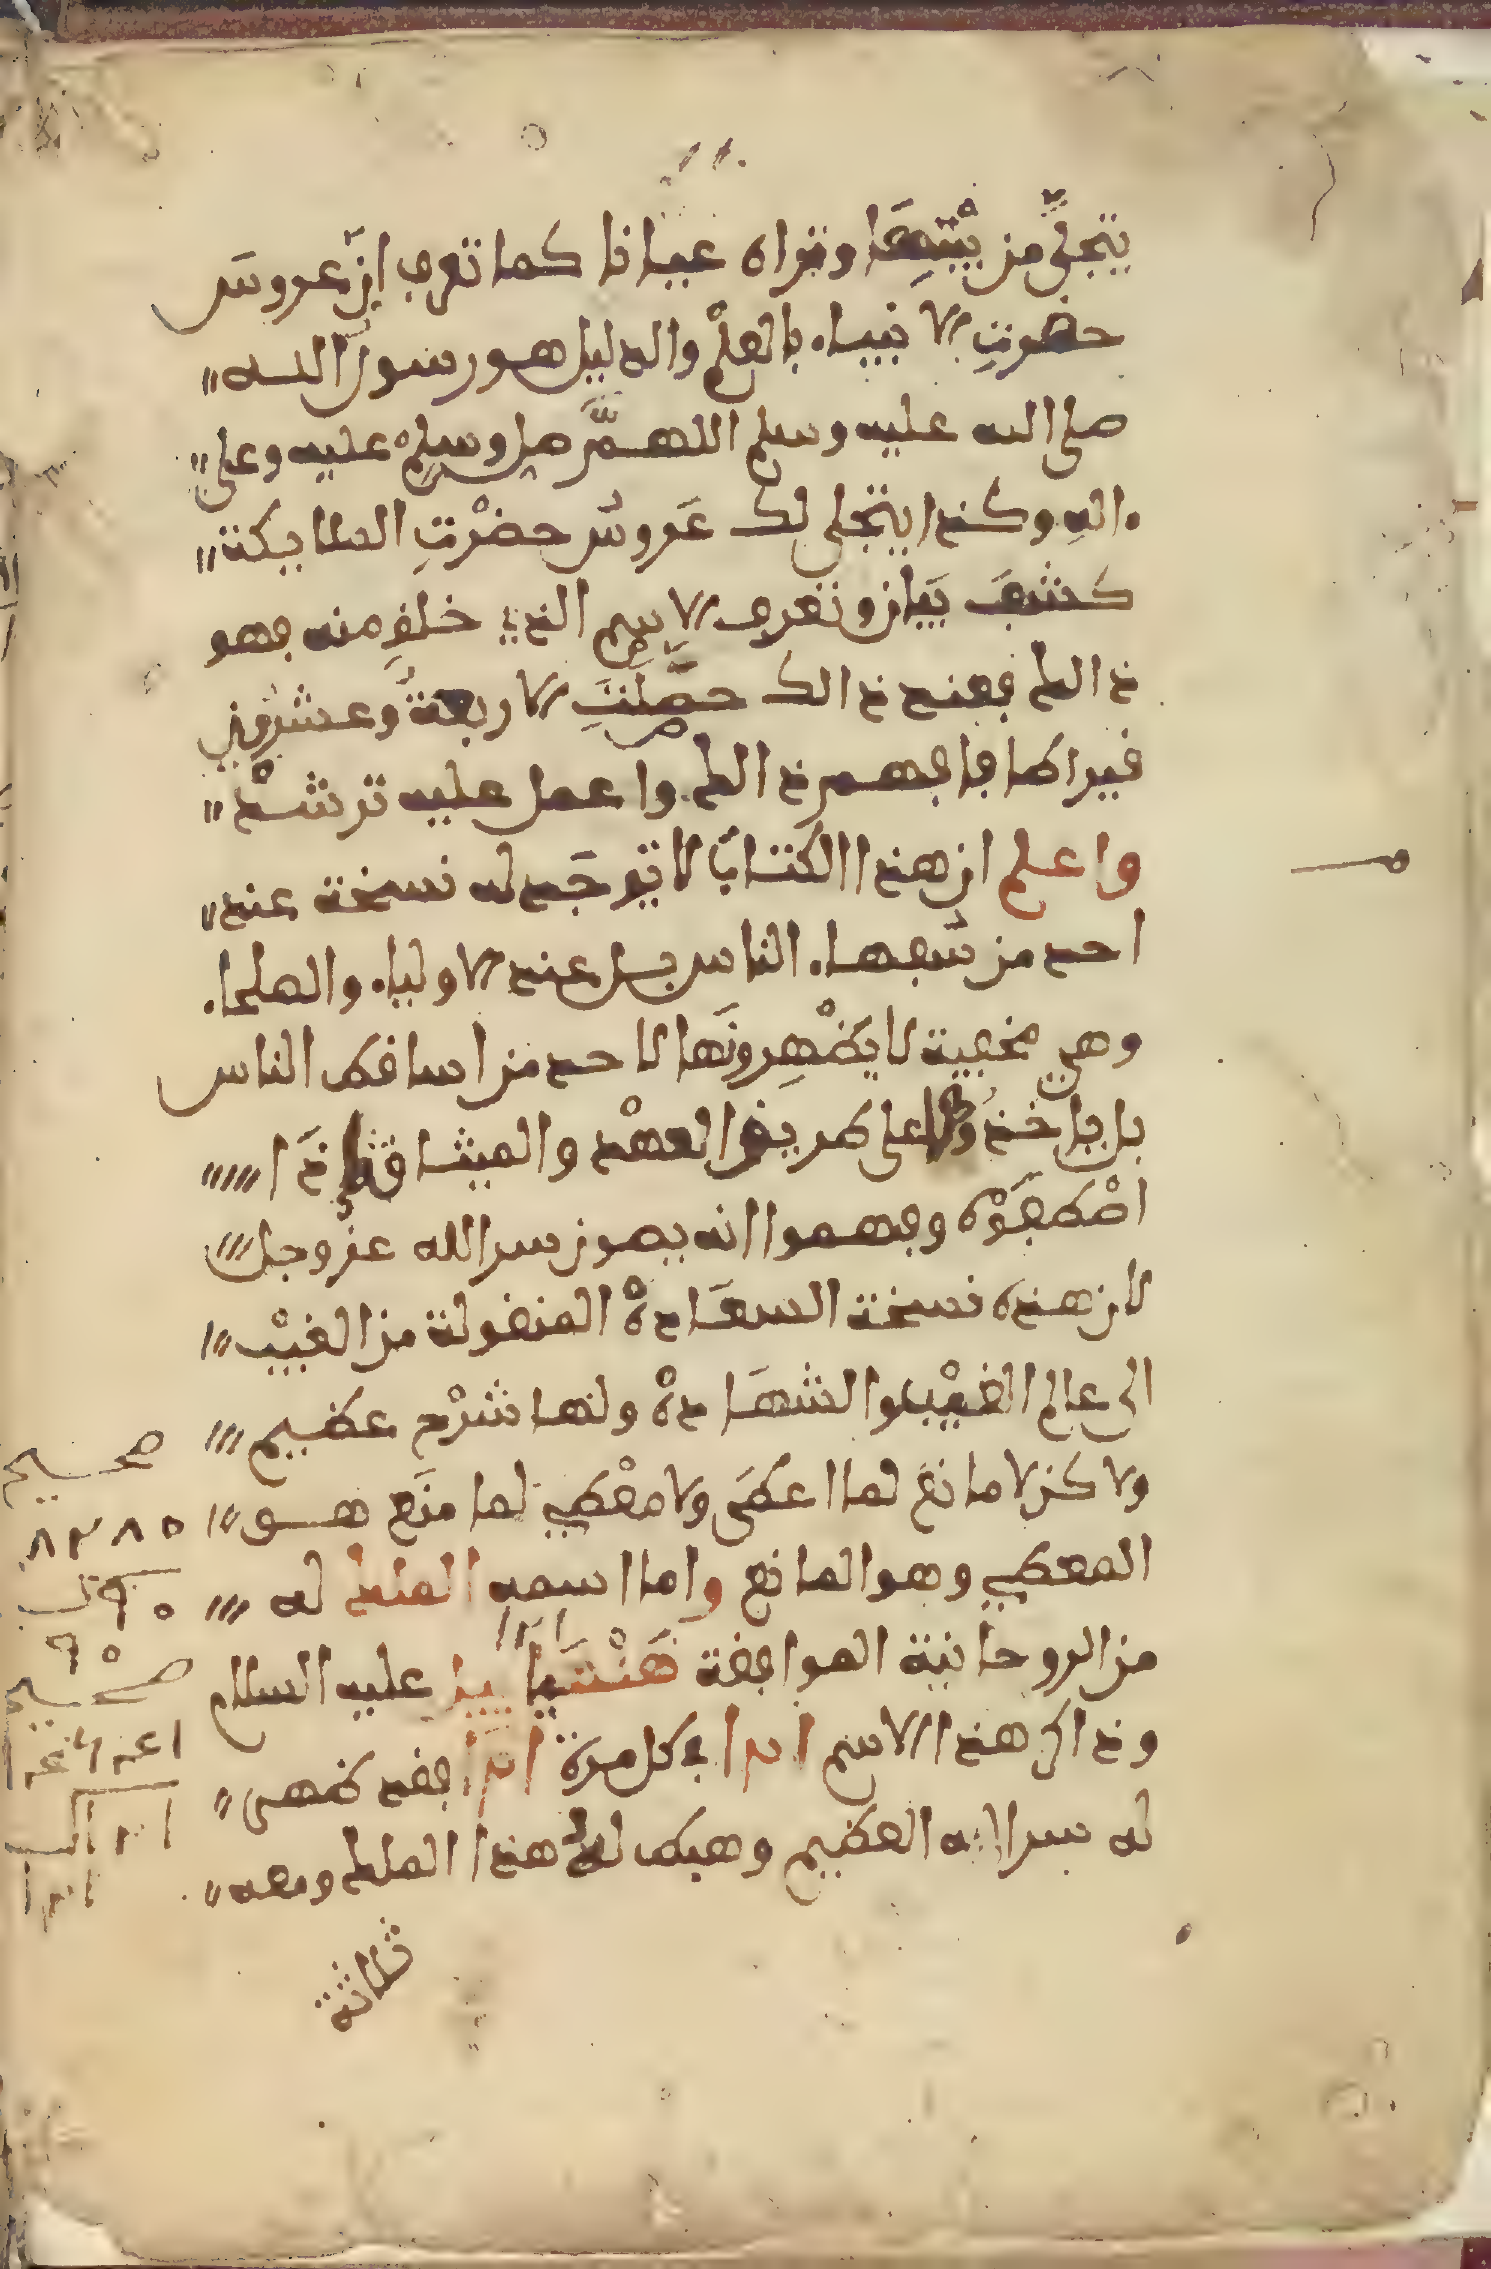 يتجلى من وتراه عيانا كما تعرف ان عروس
حضرت الانبياء بالعلم والدليل هو رسول الله
صلى الله عليه وسلم اللهم صل وسلم عليه وعلى
اله وكذا يتجلى لك عروس حضرت الملايكة
كشف بيان وتعرف الاسم الذي خلق منه فهو
ذالك فعند ذالك حصلت الاربعة وعشرين
قيراطا فافهم ذالك واعمل عليه ترشد
واعلم ان هذا الكتاب لا توجد له نسخة عند
احد من سفهاء الناس بل عند الاولياء والصلحاء
وهي مخفية لا يظهرونها لاحد من اسافط الناس
بل ياخذ على طريق العهد والميثاق اذا
اصطفوه وفهموا انه يصون سر الله عز وجل
لان هذه نسخة السعادة المنقولة من الغيب
الى عالم الغيب والشهادة ولها شرح عظيم
ولاكن لا مانع لما اعطى ولا معطي لما منع هو
المعطي وهو المانع واما اسمه له
من الروحانية الموافقة عليه السلام
وذاكر هذا الاسم في كل مرة فقد ظهر
له سر الله العظيم وهبط له هذا الملك ومعه
ثلاثة
صحيح